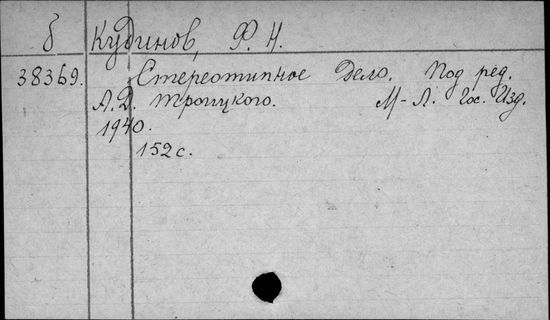 б Кудинов, Ф. Н.
38369. Стереотипное Дело. Под ред.
А.Д. Троицкого. М-Л. Гос. Изд.
1940.
152 с.